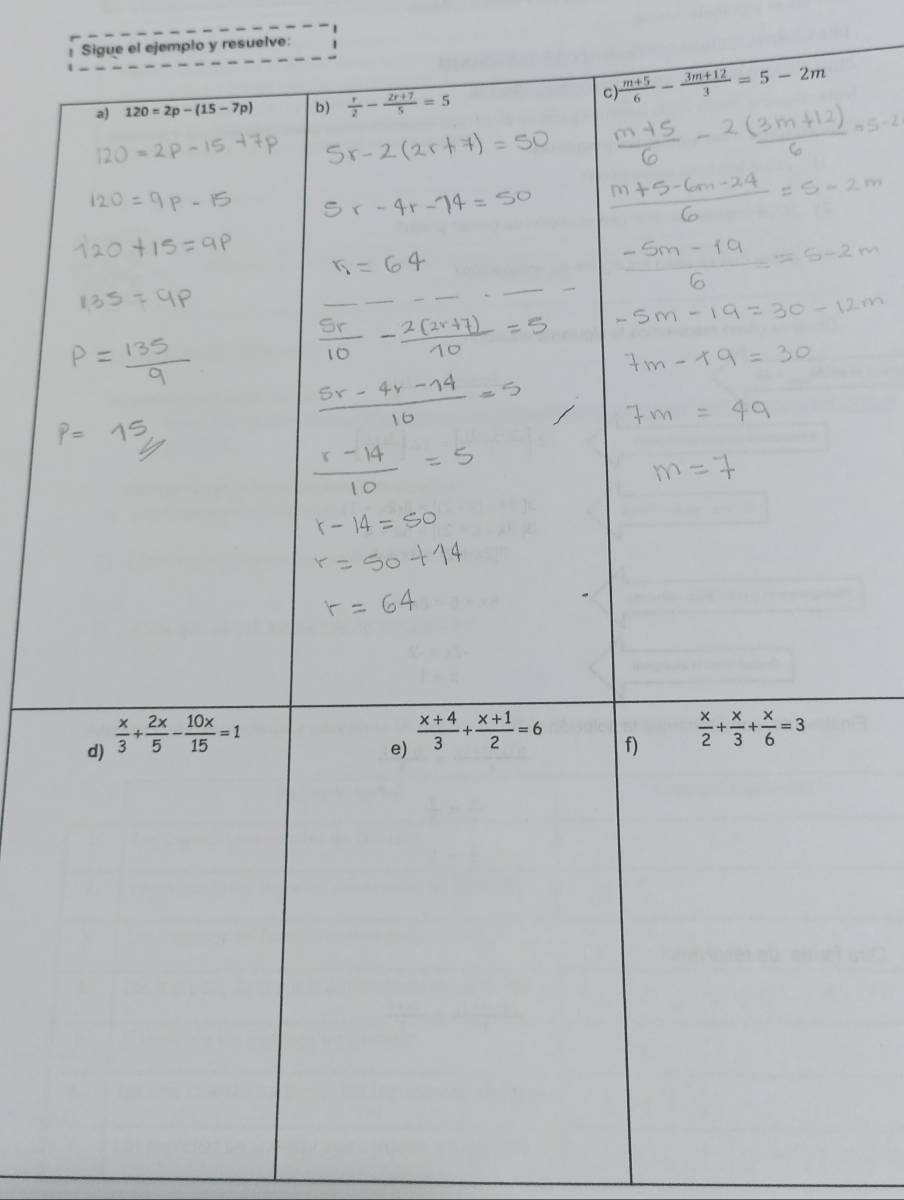 Sigue el ejemplo y resuelve:
a) 120 = 2p - (15 - 7p)
120 = 2p - 15 + 7p
120 = 9p - 15
120 + 15 = 9p
135 = 9p
p = 135/9
p = 15
b) r/2 - (2r+7)/5 = 5
5r - 2(2r + 7) = 50
5r - 4r - 14 = 50
r = 64
5r/10 - 2(2r+7)/10 = 5
(5r - 4r - 14)/10 = 5
(r - 14)/10 = 5
r - 14 = 50
r = 50 + 14
r = 64
c) (m+5)/6 - (3m+12)/3 = 5 - 2m
(m+5)/6 - 2(3m+12)/6 = 5-2
(m+5-6m-24)/6 = 5-2m
(-5m-19)/6 = 5-2m
-5m - 19 = 30 - 12m
7m - 19 = 30
7m = 49
m = 7
d) x/3 + 2x/5 - 10x/15 = 1
e) (x+4)/3 + (x+1)/2 = 6
f) x/2 + x/3 + x/6 = 3